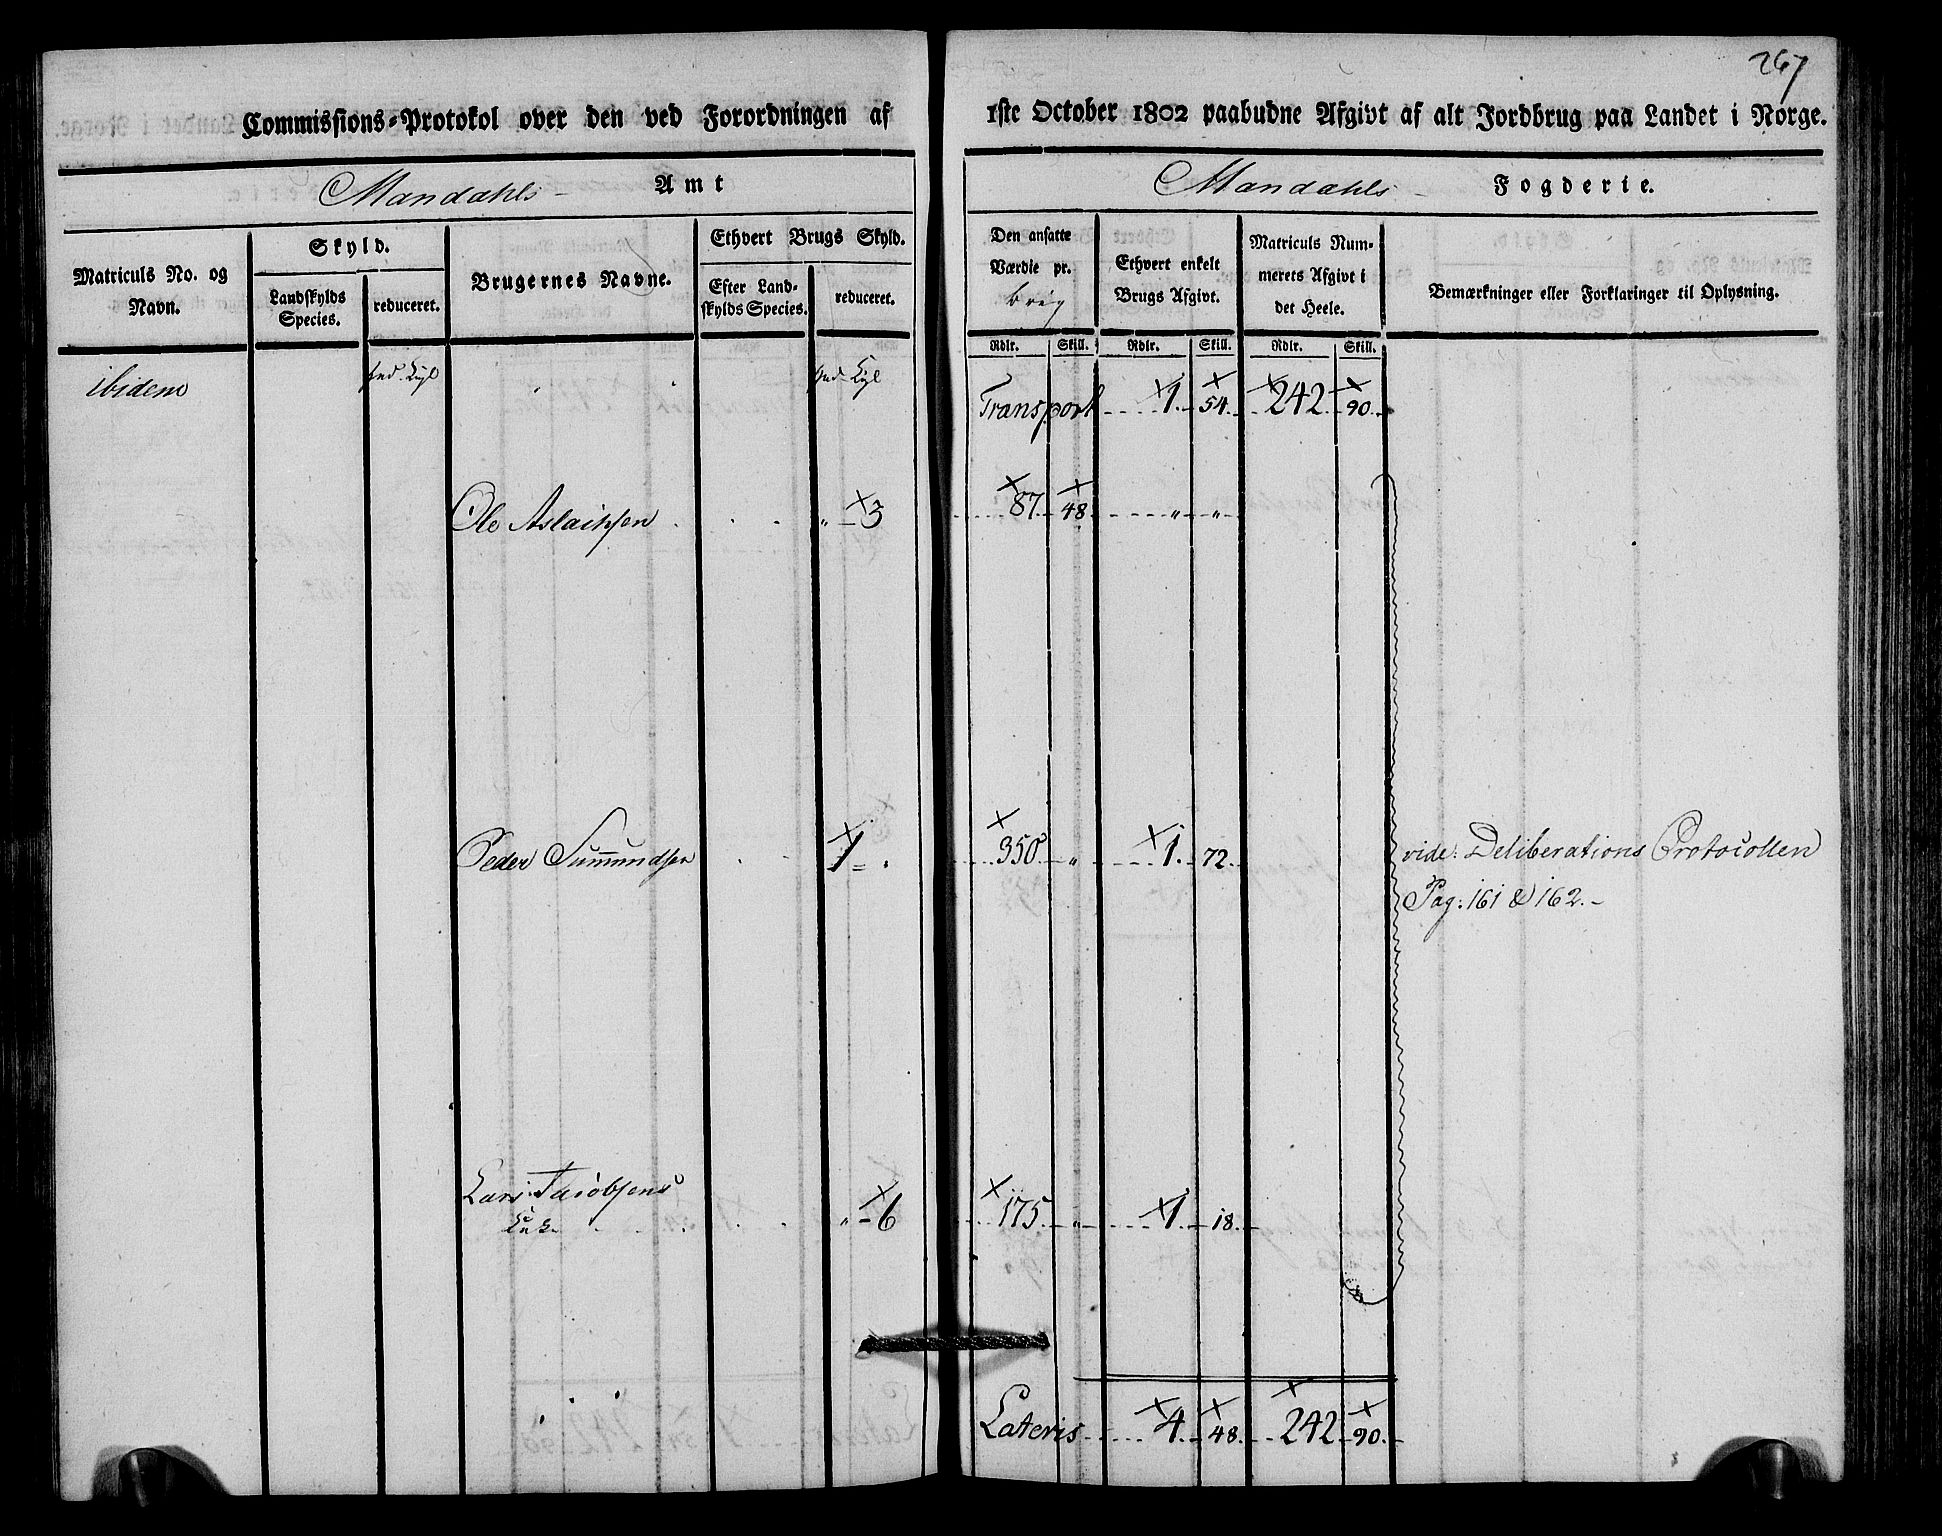 267
Commissions-Protokol over den ved Forordningen af 1ste October 1802 paabudne Afgivt af alt Jordbrug paa Landet i Norge.
Mandahls Amt
Mandahls Fogderie.
Matriculs No. og Navn.
Skyld.
Landskylds Species.
reduceret.
Brugernes Navne.
Ethvert Brugs Skyld.
Efter Landskylds Species.
reduceret.
Den ansatte Værdie pr.
Ethvert enkelt Brugs Afgivt.
Matriculs Nummerets Afgivt i det Heele.
Bemærkninger eller Forklaringer til Oplysning.
Rdlr. Skill. Rdlr. Skill. Rdlr. Skill.
ibidem
Transport 1. 54. 242. 90.
Ole Aslaksen " 3 87. 48. " "
Peder Summundsen 1 350 " 1. 72.
vide: Deliberations Protocollen
Pag: 161 & 162.
Lars Jacobsens
" 6 175. " 1. 18.
Lateris 4. 48. 242. 90.